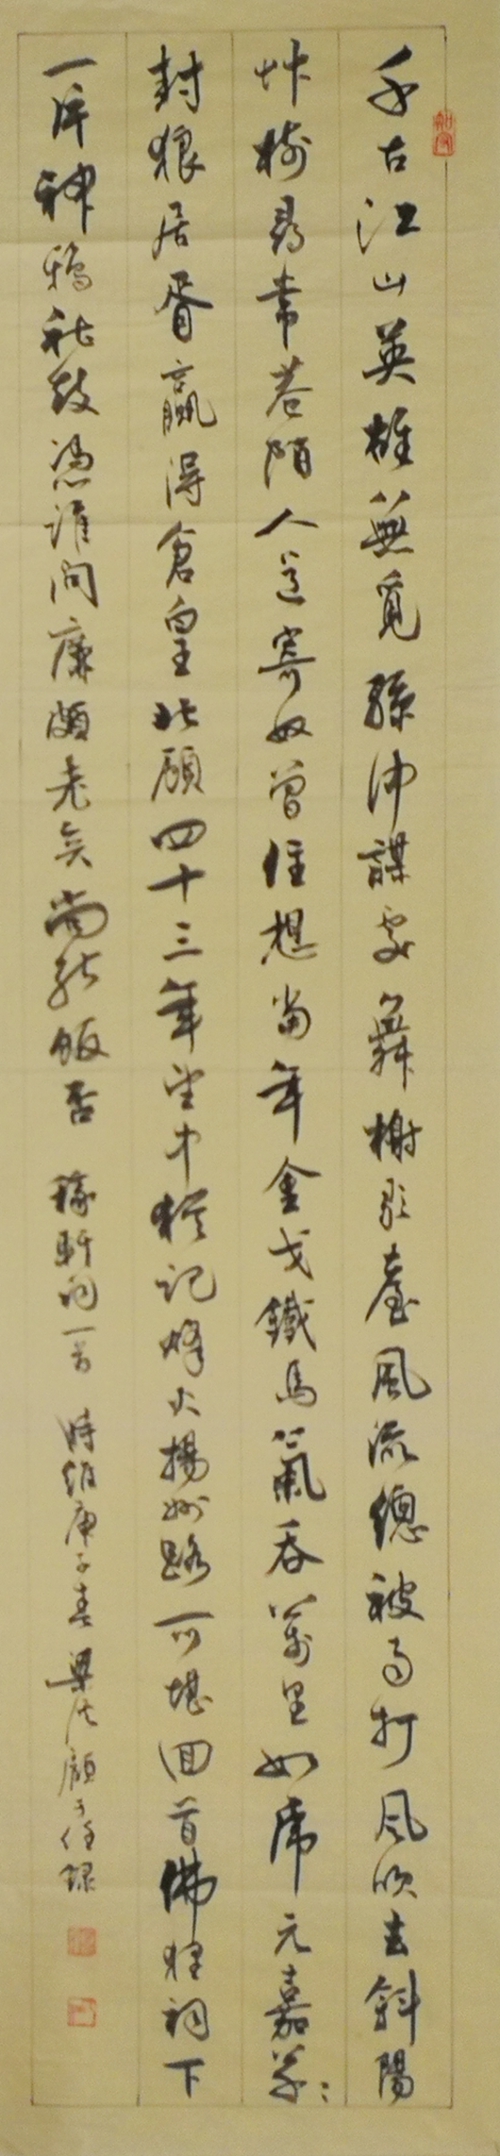 千古江山英雄無覓孫仲謀處舞榭歌臺風流總被雨打風吹去斜陽
艸樹尋常巷陌人道寄奴曾住想當年金戈鐵馬氣吞萬里如虎元嘉草〻
封狼居胥贏得倉皇北顧四十三年望中猶記烽火揚州路可堪回首佛狸祠下
一片神鴉社鼓憑誰問廉頗老矣尚能飯否 稼軒詞一首 時維庚子春 梁溪顧錄